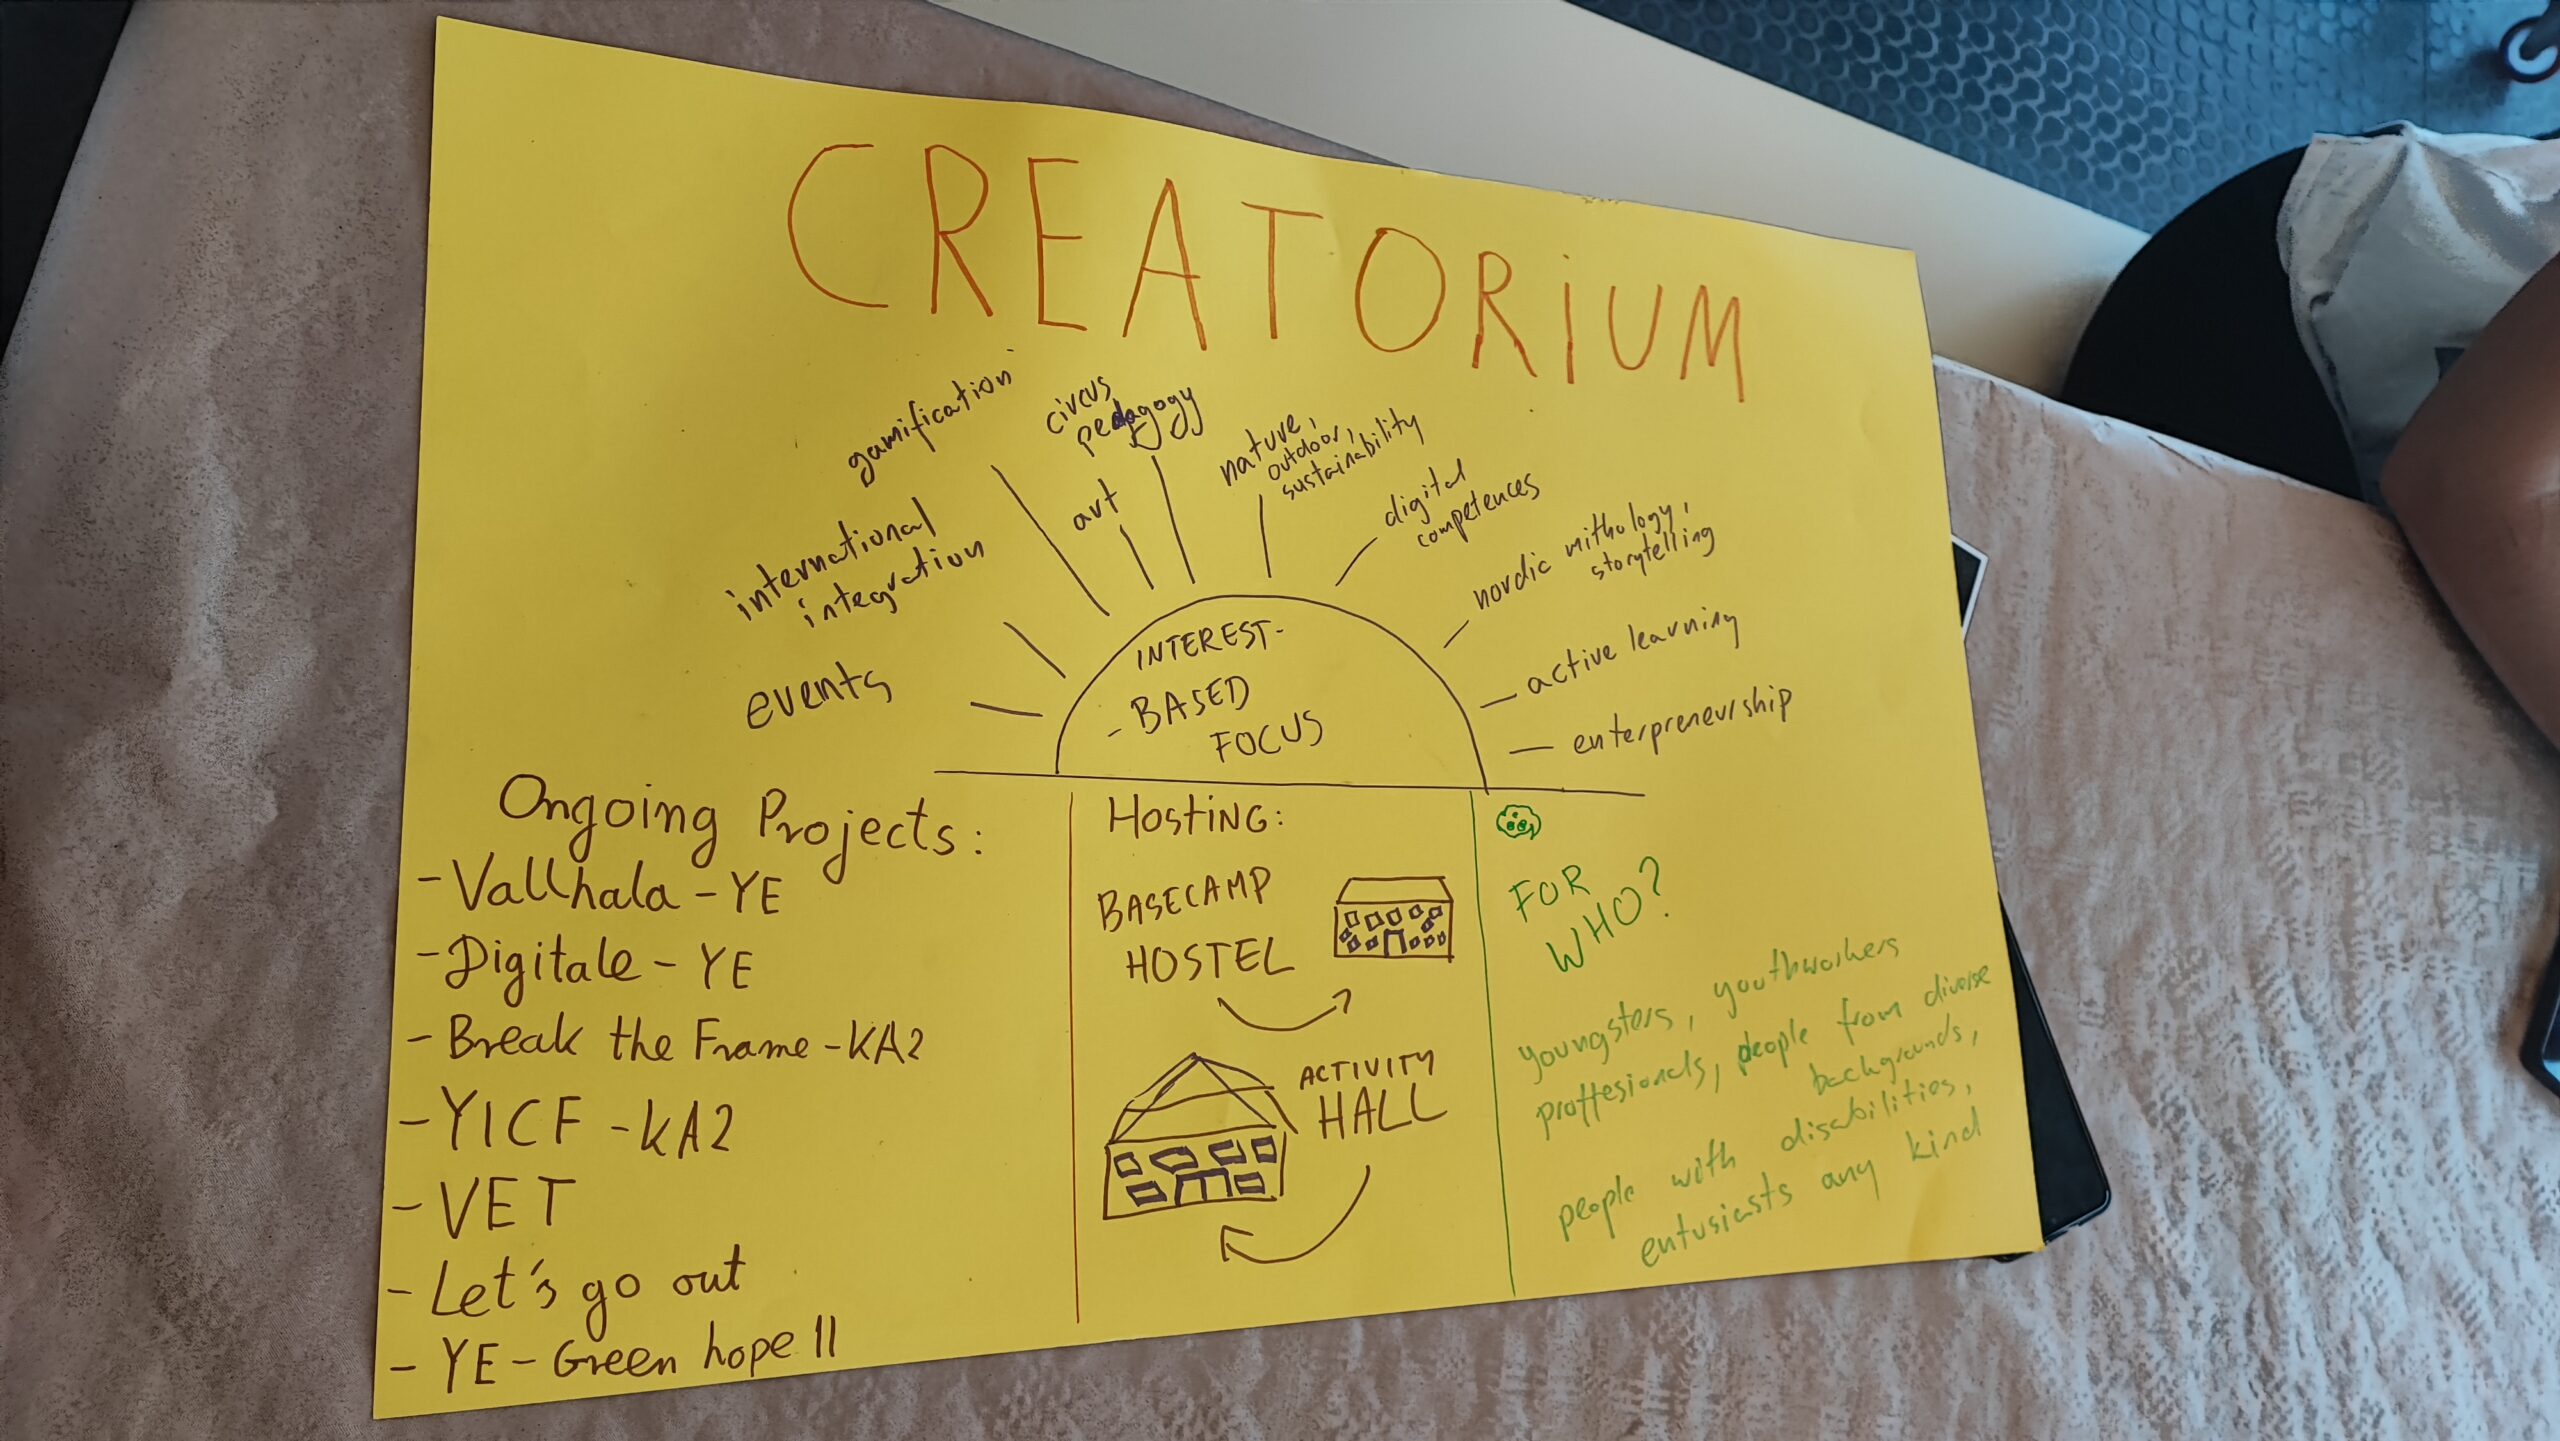 CREATORiUM
gamification
circus
pedagogy
art
nature,
outdoor,
sustainability
digital
competences
international
integration
nordic mithology,
storytelling
events
active learning
enterpreneurship
INTEREST-
-BASED
FOCUS
Ongoing Projects:
- Vallhala - YE
- Digitale - YE
- Break the Frame - KA2
- YICF - KA2
- VET
- Let's go out
- YE - Green hope II
HostiNG:
BASECAMP
HOSTEL
ACTIVITY
HALL
FOR
WHO?
youngsters, youthworkers
proffesionals, people from diverse
backgrounds,
people with disabilities,
entusiasts any kind